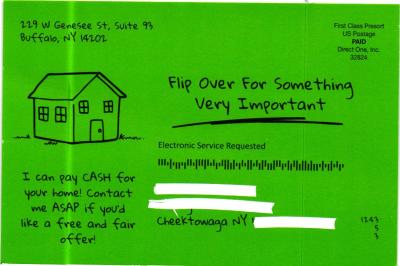 229 W Genesee St, Suite 93
Buffalo, NY 14202
First Class Presort
US Postage
PAID
Direct One, Inc.
32824
Flip Over For Something
Very Important
Electronic Service Requested
I can pay CASH for
your home! Contact
me ASAP if you'd
like a free and fair
offer!
Cheektowaga NY
1243
5
3